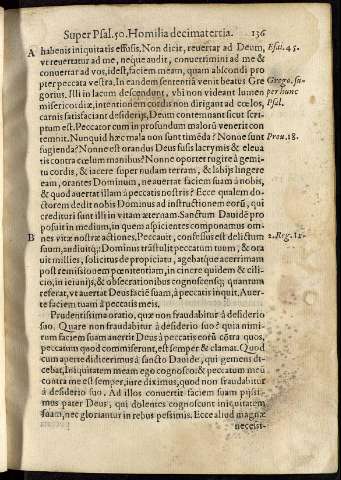 Super Psal. 50. Homilia decimatertia. 136
A habenis iniquitatis effusis. Non dicit, reuertar ad Deum, Psal. 45.
vt reuertatur ad me, neque audit, conuertimini ad me &
conuertar ad vos, id est, faciem meam, quam abscondi pro
pter peccata vestra. In eandem sententiā venit beatus Gre Grego. su-
gorius. Illi in lacum descendunt, vbi non videant lumen per hunc
misericordiæ, intentionem cordis non dirigant ad cœlos, Psal.
carnis satisfaciant desiderijs, Deum contemnant sicut scri
ptum est. Peccator cum in profundum malorū venerit con
temnit. Nunquid hæc mala non sunt timēda? Nonne sunt Prou. 18.
fugienda? Nonne est orandus Deus fusis lacrymis & eleua
tis contra cœlum manibus? Nonne oportet rugire à gemi-
tu cordis, & iacere super nudam terram, & labijs lingere
eam, orantes Dominum, ne auertat faciem suam à nobis,
& quod auertat illam à peccatis nostris? Ecce qualem do-
ctorem dedit nobis Dominus ad instructionem eorū, qui
credituri sunt illi in vitam æternam. Sanctum Dauidē pro
posuit in medium, in quem aspicientes componamus om
B nes vitæ nostræ actiones. Peccauit, confessus est delictum 2. Reg. 12.
suum, audiuitq; Dominus trāstulit peccatum tuum, & ora
uit millies, solicitus de propiciatu, agebatque acerrimam
post remissionem pœnitentiam, in cinere quidem & cili-
cio, in ieiunijs, & obseruationibus cognoscensq; quantum
referat, vt auertat Deus faciē suam, à peccatis inquit. Auer-
te faciem tuam à peccatis meis.
Prudentissima oratio, quæ non fraudabitur à desiderio
suo. Quare non fraudabitur à desiderio suo? quia nimi-
rum faciem suam auertit Deus à peccatis eorū cōtra quos,
peccatum quod commiserunt, est semper & clamat. Quod
cum aperte didicerimus à sancto Dauide, qui gemens di-
cebat, Iniquitatem meam ego cognosco: & peccatum meū
contra me est semper, iure diximus, quod non fraudabitur
à desiderio suo. Ad illos conuertit faciem suam pijssi-
mus pater Deus, qui dolentes cognoscunt iniquitatem
suam, nec gloriantur in rebus pessimis. Ecce aliud magnæ
necessi-